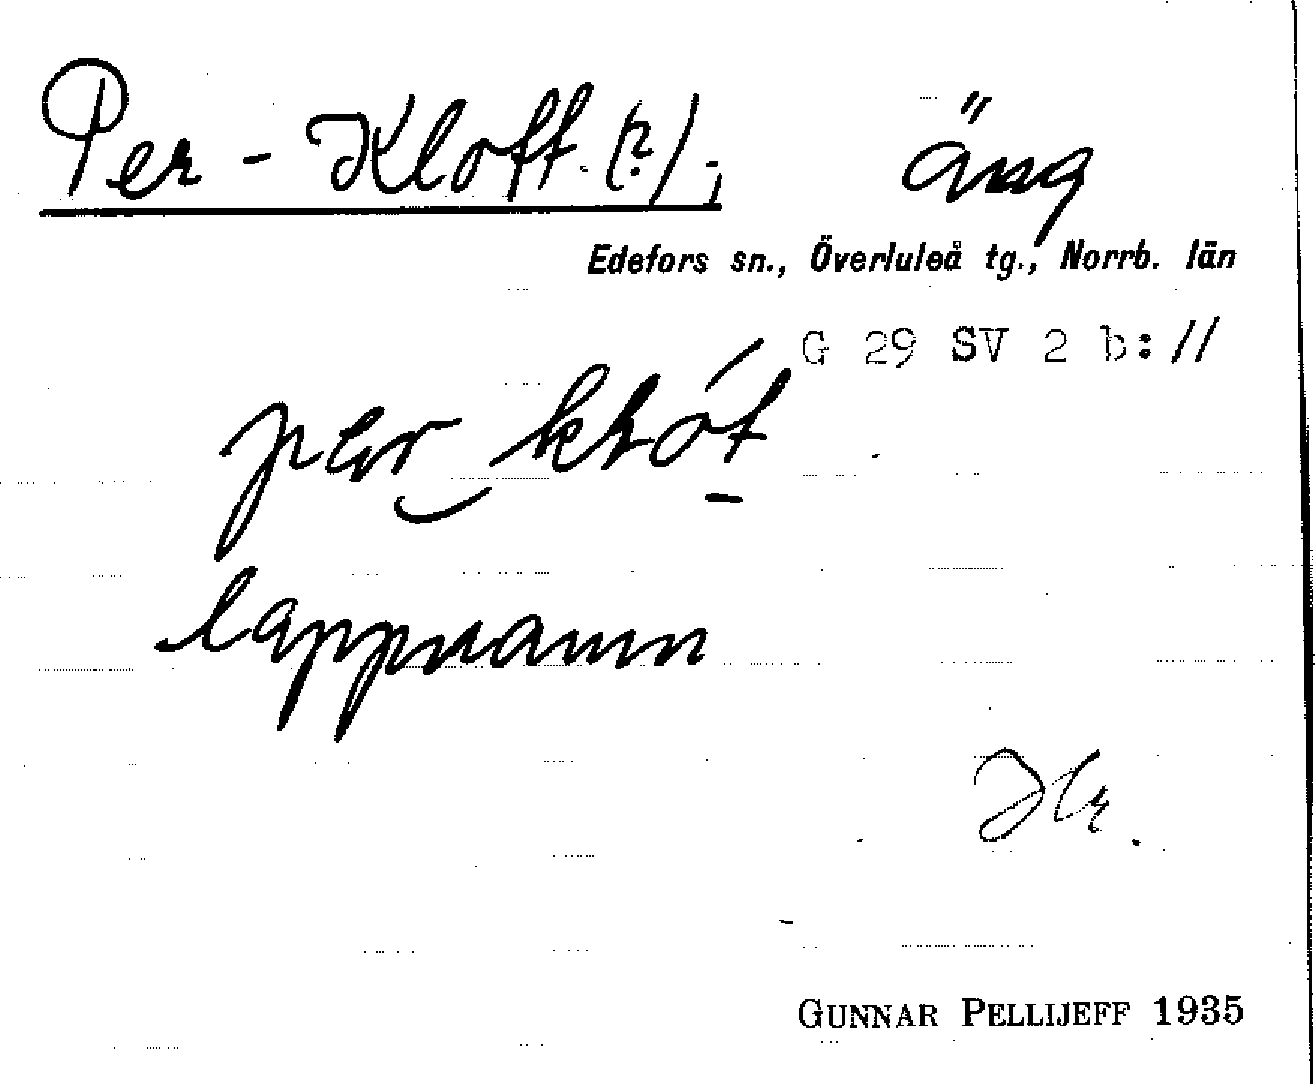 Per-Kloft (?), äng
Edefors sn., Överluleå tg., Norrb. län
G 29 SV 2 b: 11
lappmann
GUNNAR PELLIJEFF 1935